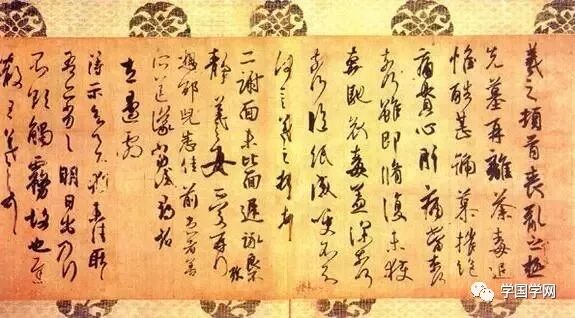 羲之頓首喪亂之極
先墓再離荼毒追
惟酷甚號慕摧絕
痛貫心肝痛當奈何
奈何雖即脩復未獲
奔馳哀毒益深奈何
奈何臨紙感哽不知
何言羲之頓首頓首
二謝面未比面遲詠良不
靜羲之女愛再拜
想邵兒悉佳前患者善
左邊劇
得示知足下猶未佳耿耿
吾亦劣劣明日出乃行
不欲觸霧故也遲
散王羲之頓首
学国学网